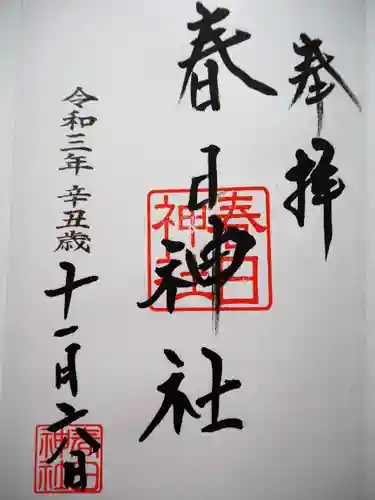 奉拝
春日神社
春日神社
令和三年 辛丑歳 十一月六日
春日神社